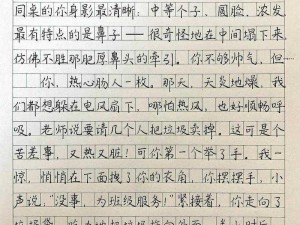 同桌的你身影最清晰：中等个子，圆脸，浓发，
最有特点的是鼻子——很奇怪地在中间塌下来，
仿佛不胜那肥厚鼻头的牵引。你不够帅气，但…
你，热心肠人一枚。那天，天炎地燥，我
们都想躲在电风扇下，哪怕热风，也好顺畅呼
吸。老师说要请几个人把垃圾卖掉。这可是个
苦差事，又热又脏！可你第一个举了手。我一
惊，悄悄在下面拽了你的衣角，你摆摆手，小
声说："没事，为班级服务！"紧接着，你走向了